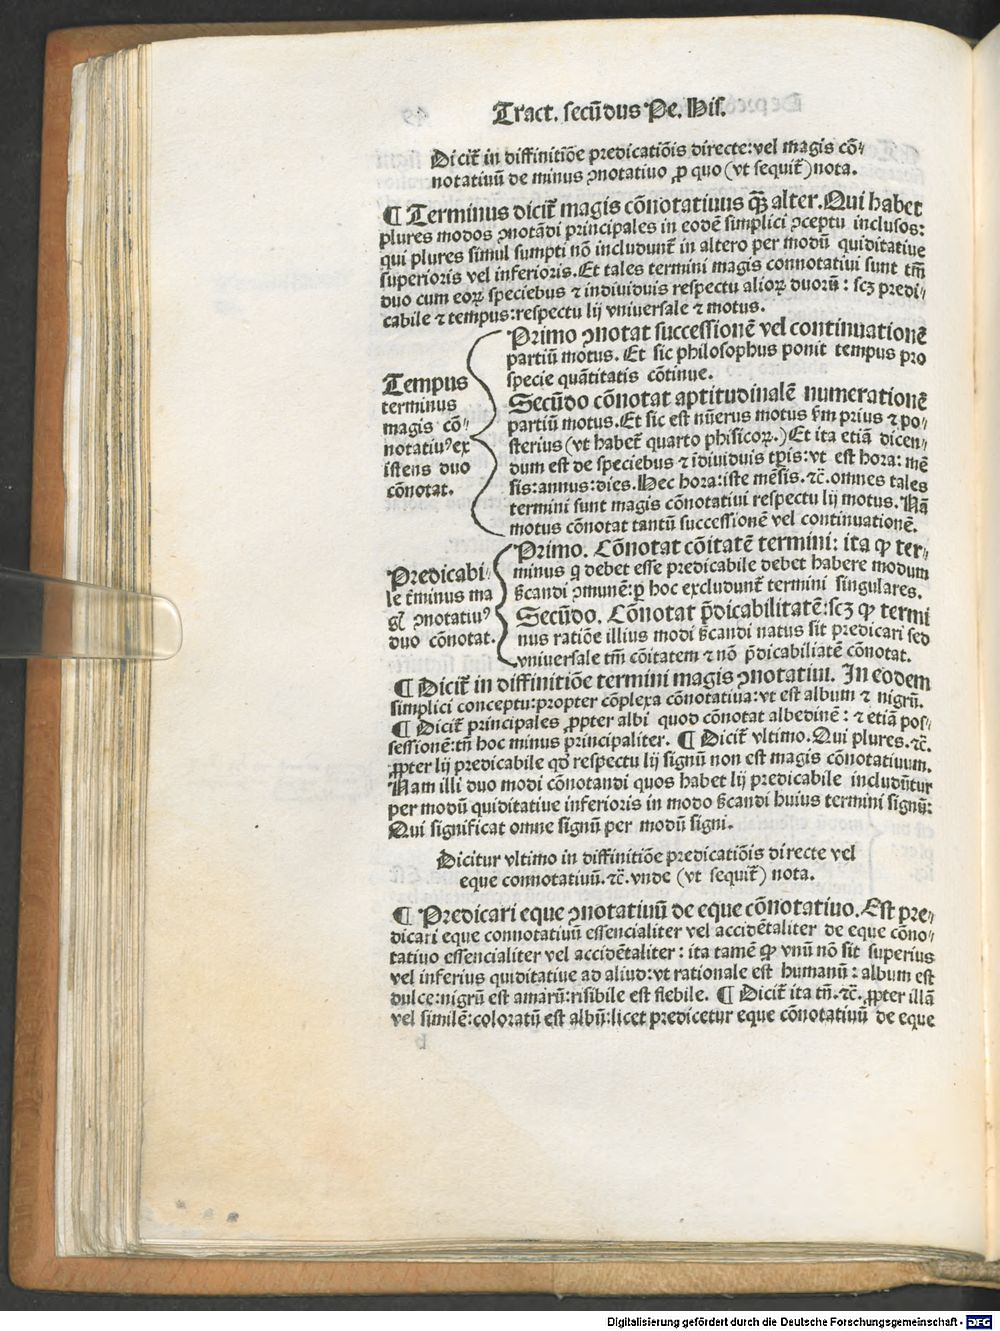 Tract. secũdus Pe. His.
Dicit̃ in diffinitiõe predicatiõis directe: vel magis cõ⸗
notatiuũ de minus ꝯnotatiuo ꝓ quo (vt sequit̃) nota.
¶ Terminus dicit̃ magis cõnotatiuus qᷓꝫ alter. Qui habet
plures modos ꝯnotãdi principales in eodẽ simplici ꝯceptu inclusos:
qui plures simul sumpti nõ includunt̃ in altero per modũ quiditatiue
superioris vel inferioris. Et tales termini magis connotatiui sunt tm̃
duo cum eoꝝ speciebus ⁊ indiuiduis respectu alioꝝ duorũ: scꝫ predi⸗
cabile ⁊ tempus: respectu lij vniuersale ⁊ motus.
Tempus
terminus
magis cõ⸗
notatiuꝰ ex
istens duo
cõnotat.
Primo ꝯnotat successionẽ vel continuationẽ
partiũ motus. Et sic philosophus ponit tempus pro
specie quãtitatis cõtinue.
Secũdo cõnotat aptitudinalẽ numerationẽ
partiũ motus. Et sic est nũerus motus ẜm prius ⁊ po⸗
sterius (vt habet̃ quarto phisicoꝝ.) Et ita etiã dicen⸗
dum est de speciebus ⁊ ĩdiuiduis tp̃is: vt est hora: mẽ
sis: annus: dies. Hec hora: iste mẽsis. ⁊c̃. omnes tales
termini sunt magis cõnotatiui respectu lij motus. Nã
motus cõnotat tantũ successionẽ vel continuationẽ.
Predicabi⸗
le t̃minus ma
gꝭ ꝯnotatiuꝰ
duo cõnotat.
Primo. Cõnotat cõitatẽ termini: ita ꝙ ter⸗
minus q̃ debet esse predicabile debet habere modum
ẜcandi ꝯmunẽ: ꝑ hoc excludunt̃ termini singulares.
Secũdo. Cõnotat p̃dicabilitatẽ: scꝫ ꝙ termi
nus ratiõe illius modi ẜcandi natus sit predicari sed
vniuersale tm̃ cõitatem ⁊ nõ p̃dicabiliatẽ cõnotat.
¶ Dicit̃ in diffinitiõe termini magis ꝯnotatiui. In eodem
simplici conceptu: propter cõplexa cõnotatiua: vt est album ⁊ nigrũ.
¶ Dicit̃ principales ꝓpter albi quod cõnotat albedinẽ: ⁊ etiã pos⸗
sessionẽ: tñ hoc minus principaliter. ¶ Dicit̃ vltimo. Qui plures. ⁊c̃.
ꝓpter lij predicabile qd̃ respectu lij signũ non est magis cõnotatiuum.
Nam illi duo modi cõnotandi quos habet lij predicabile includũtur
per modũ quiditatiue inferioris in modo ẜcandi huius termini signũ:
Qui significat omne signũ per modũ signi.
Dicitur vltimo in diffinitiõe predicatiõis directe vel
eque connotatiuũ. ⁊c̃. vnde (vt sequit̃) nota.
¶ Predicari eque ꝯnotatiuũ de eque cõnotatiuo. Est pre⸗
dicari eque connotatiuũ essencialiter vel accidẽtaliter de eque cõno⸗
tatiuo essencialiter vel accidẽtaliter: ita tamẽ ꝙ vnũ nõ sit superius
vel inferius quiditatiue ad aliud: vt rationale est humanũ: album est
dulce: nigrũ est amarũ: risibile est flebile. ¶ Dicit̃ ita tñ. ⁊c̃. ꝓpter illã
vel similẽ: coloratũ est albũ: licet predicetur eque cõnotatiuũ de eque
Digitalisierung gefördert durch die Deutsche Forschungsgemeinschaft - DFG